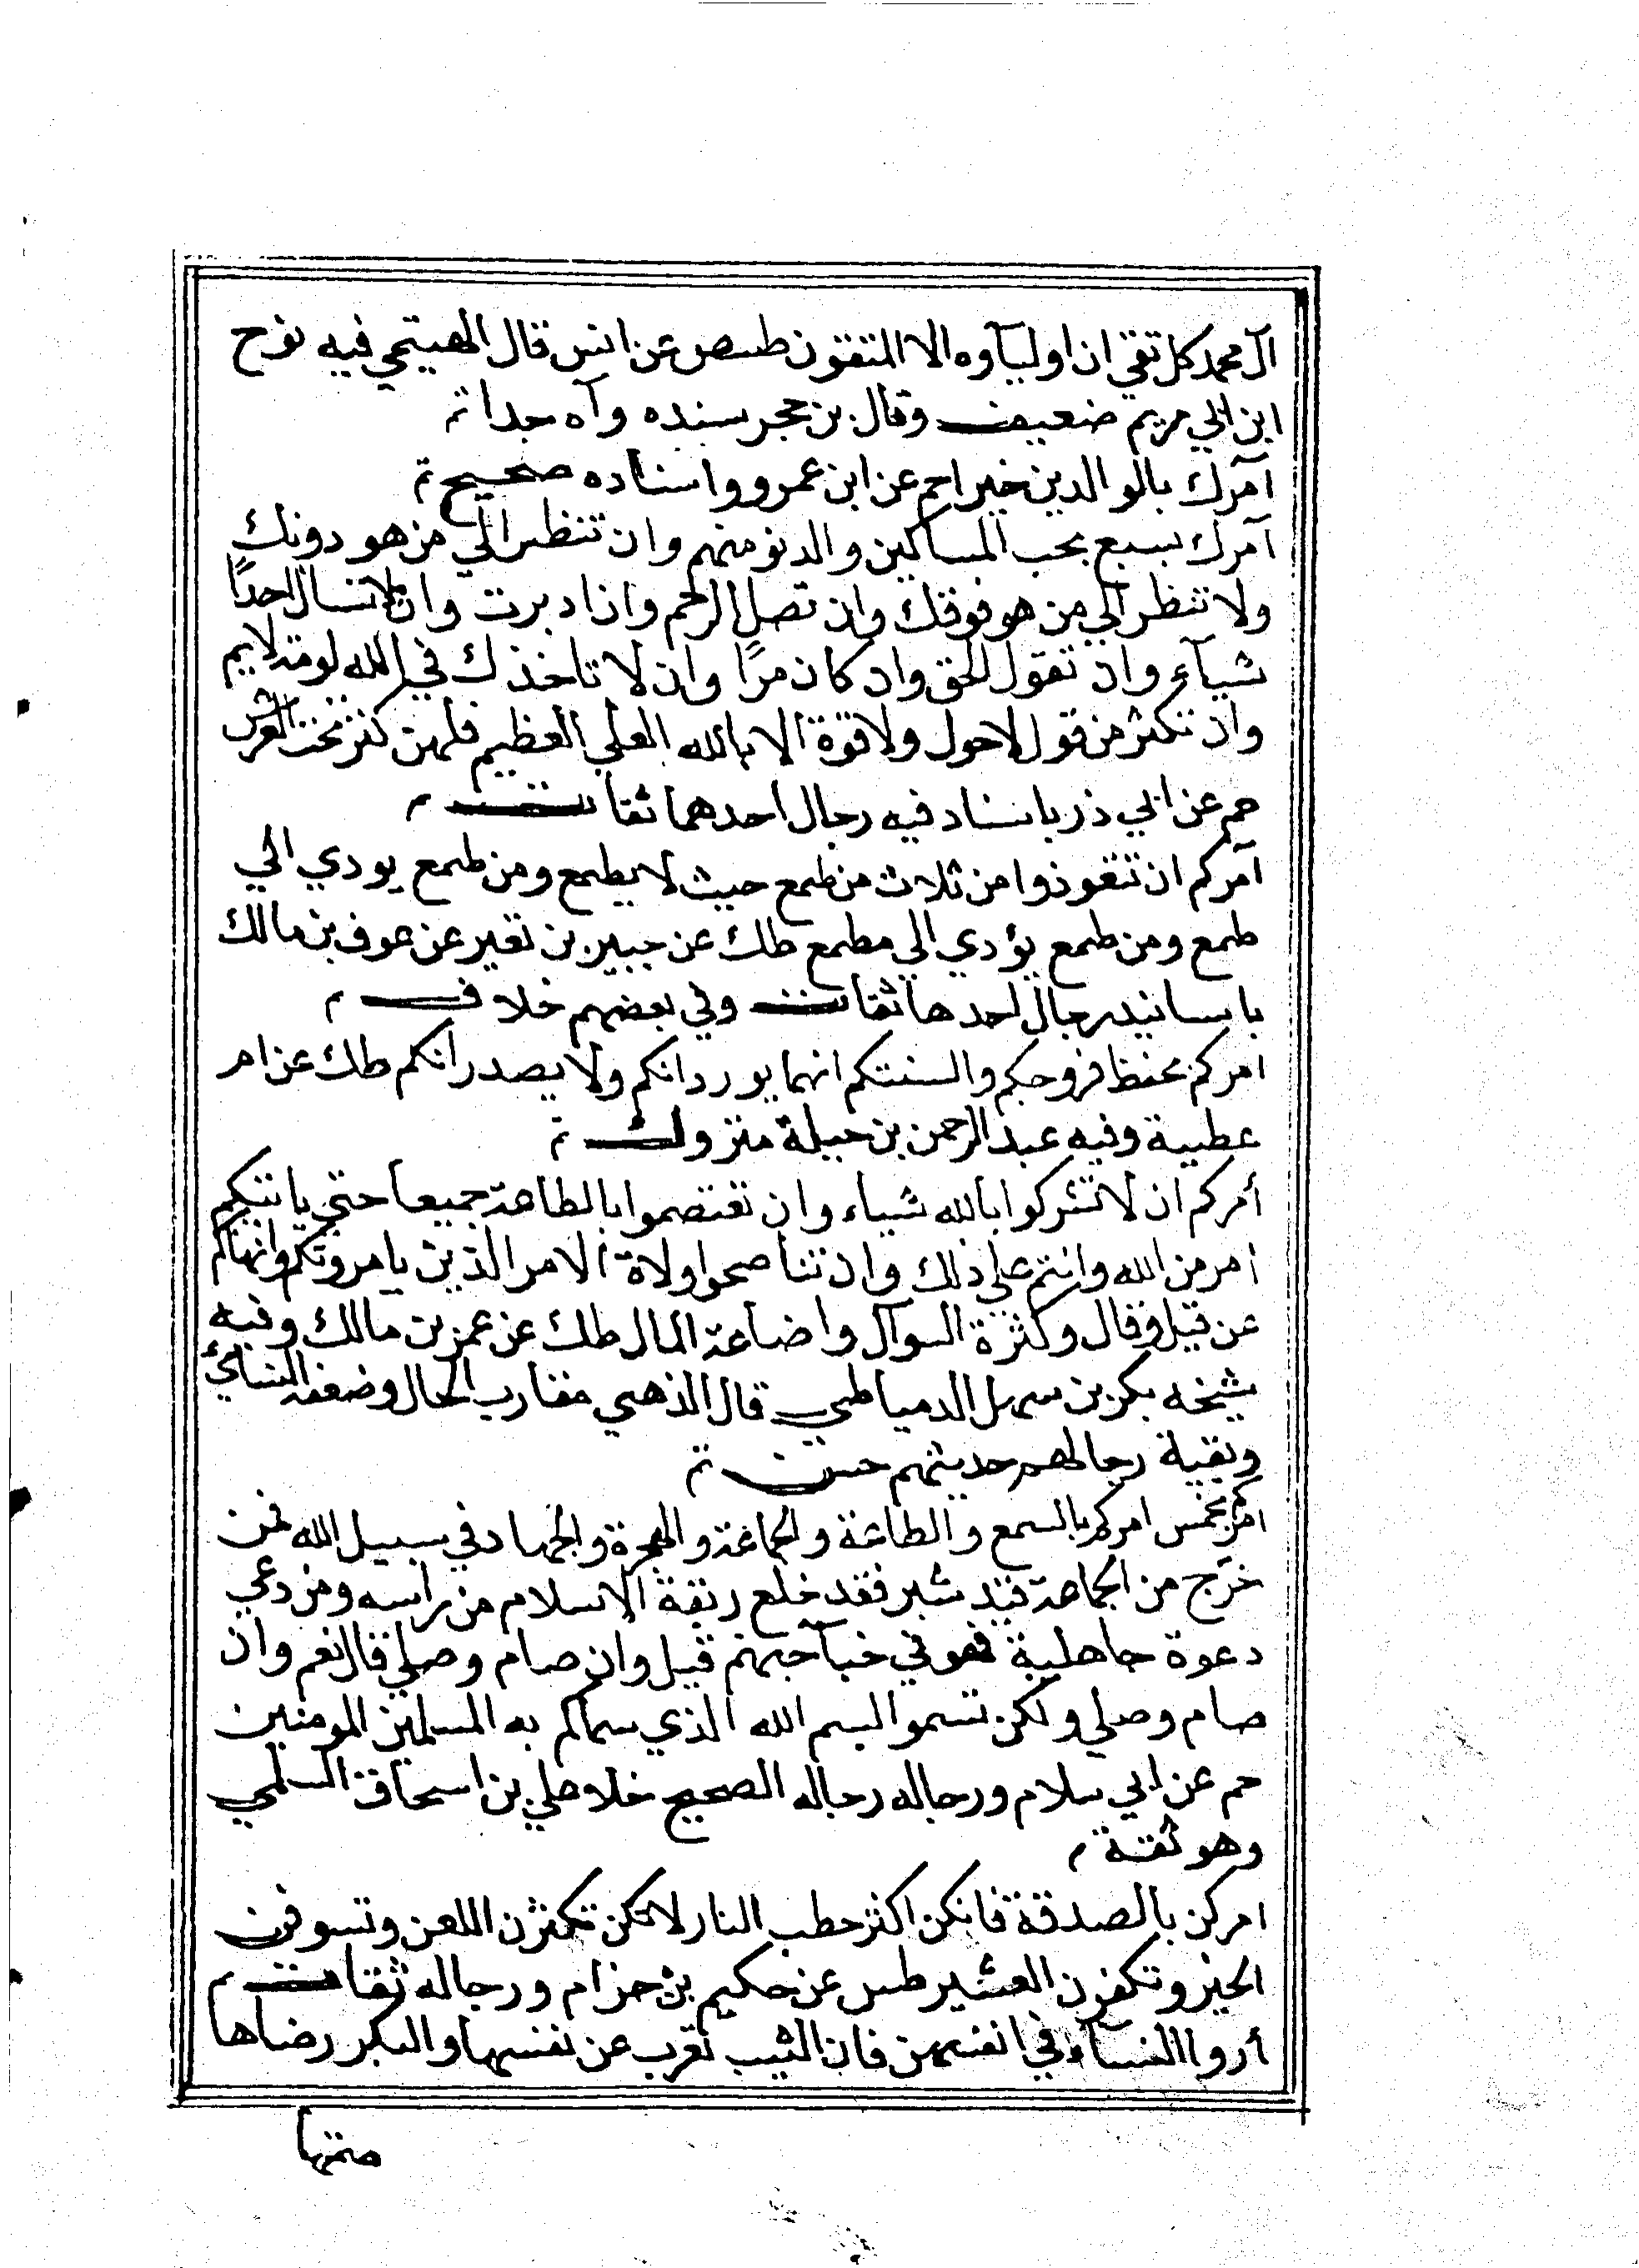 آل محمد كل تقي ان اوليآوه الا المتقون طسص عن انس قال الهيتمي فيه نوح
ابن ابي مريم ضعيف وقال بن حجر سنده وآه جدا تم
آمرك بالوالدين خيرا حم عن ابن عمرو واسناده صحيح تم
آمرك بسبع بحب المساكين والدنو منهم وان تنظر الي من هو دونك
ولا تنظر الي من هو فوقك وان تصل الرحم وان ادبرت وان لا تسال احدًا
شيآء وان تقول الحق وان كان مرًا وان لا تاخذك في الله لومة لايم
وان تكثر من قول لاحول ولا قوة الا بالله العلي العظيم فلهن كنز تحت العرش
حم عن ابي ذر باسناد فيه رجال احدهما ثقات م
آمركم ان تتعوذوا من ثلاث من طمع حيث لا يطمع ومن طمع يودي الي
طمع ومن طمع يؤدي الي مطمع طك عن جبير بن نفير عن عوف بن مالك
باسانيد رجال احدها ثقات وفي بعضهم خلاف م
امركم بحفظ فروجكم والسنتكم انهما يوردانكم ولا يصدرانكم طك عن ام
عطية وفيه عبد الرحمن بن جبلة متروك تم
أمركم ان لا تشركوا بالله شياء وان تعتصموا بالطاعة جميعا حتي ياتيكم
امر من الله وانتم علي ذلك وان تناصحوا ولاة الامر الذين يامرونكم وانهاكم
عن قيل وقال وكثرة السوآل واضاعة المال طك عن عمر بن مالك وفيه
شيخه بكر بن سهل الدمياطي قال الذهبي مقارب الحال وضعفه النسائي
وبقية رجالهم حديثهم حسن تم
امركم بخمس امركم بالسمع والطاعة والجماعة والهجرة والجهاد في سبيل الله فمن
خرج من الجماعة قيد شبر فقد خلع ربقة الاسلام من راسه ومن دعي
دعوة جاهلية فهو في خبآ جهنم قيل وان صام وصلي قال نعم وان
صام وصلي ولكن تسموا بسم الله الذي سماكم به المسلمين المومنين
حم عن ابي سلام ورجاله رجاله الصحيح خلا علي بن اسحاق السلمي
وهو ثقة م
امركن بالصدقة فانكن اكثر حطب النار لانكن تكثرن اللعن وتسوفن
الخير وتكفرن العشير طس عن حكيم بن حزام ورجاله ثقات م
أروا النسآء في انفسهن فان الثيب تعرب عن نفسها والبكر رضاها
صمتها